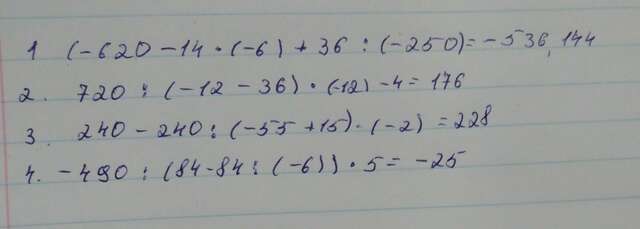 1 (-620-14·(-6)+36:(-250)=-536,144
2. 720:(-12-36)·(-12)-4=176
3. 240-240:(-55+15)·(-2)=228
4. -490:(84-84:(-6))·5=-25